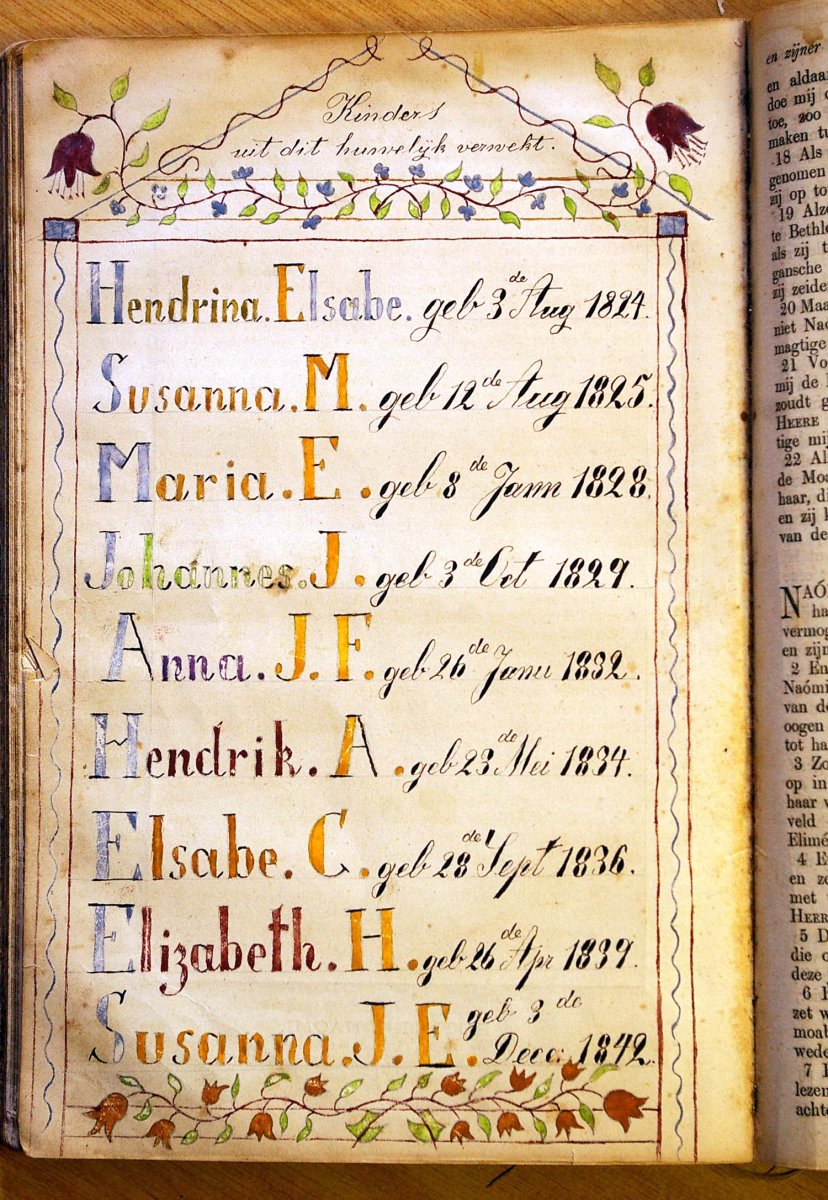 Kinders
uit dit huwelijk verwekt.
Hendrina. Elsabe. geb 3de Aug 1824.
Susanna. M. geb 12de Aug 1825.
Maria. E. geb 8de Jann 1828.
Johannes. J. geb 3de Oct 1829.
Anna. J. F. geb 26de Janu 1832.
Hendrik. A. geb 23de Mei 1834.
Elsabe. C. geb 28de Sept 1836.
Elizabeth. H. geb 26de Apr 1839.
Susanna. J. E. geb 3de
Dece: 1842.
en zijner
en aldaa
doe mij
toe, zoo
maken tu
18 Als
genomen
zij op to
19 Alz
te Bethle
als zij t
gansche
zij zeide
20 Maa
niet Nao
magtige
21 Vo
mij de
zoudt g
HEERE
tige mij
22 Al
de Moa
haar, di
en zij k
van de
NAÓ
ha
vermog
en zijn
2 En
Naómi
van de
oogen
tot ha
3 Zo
op in
haar v
veld
Elimé
4 E
en ze
met
HEER
5 D
die o
deze
6
zet w
moab
wede
7
lezen
achte